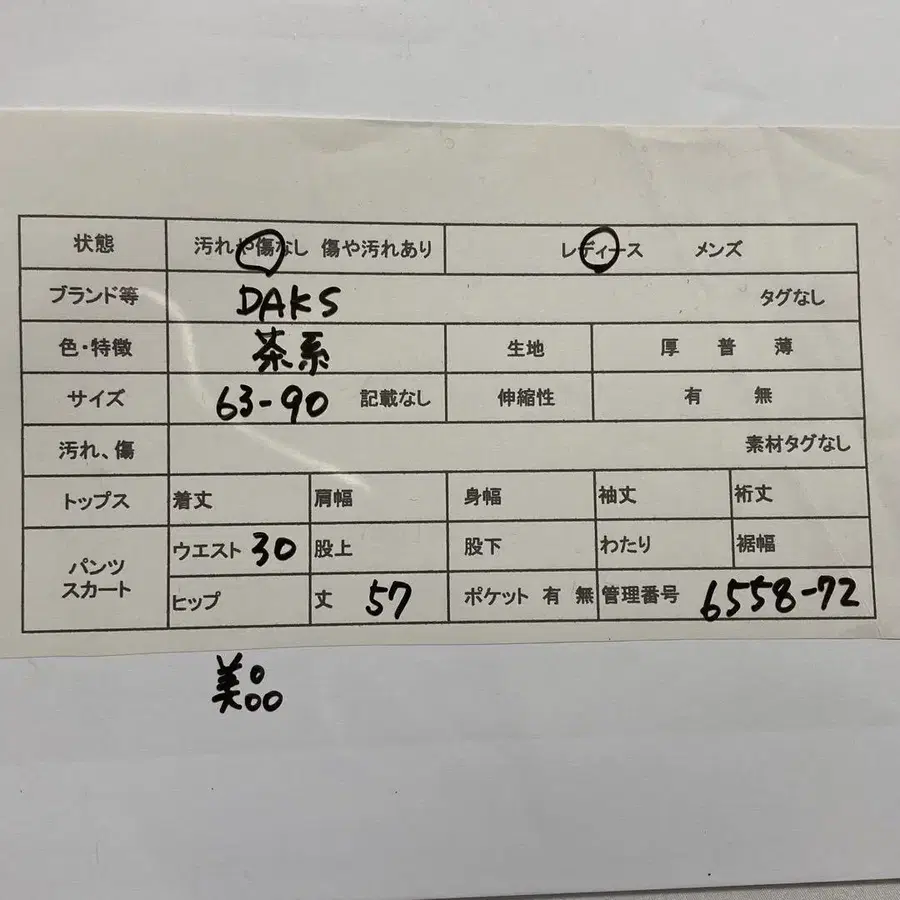 状態 汚れや傷なし 傷や汚れあり レディース メンズ
ブランド等 DAKS タグなし
色・特徴 茶系 生地 厚 普 薄
サイズ 63-90 記載なし 伸縮性 有 無
汚れ、傷 素材タグなし
トップス 着丈 肩幅 身幅 袖丈 裄丈
パンツ スカート ウエスト 30 股上 股下 わたり 裾幅
ヒップ 丈 57 ポケット 有 無 管理番号 6558-72
美品